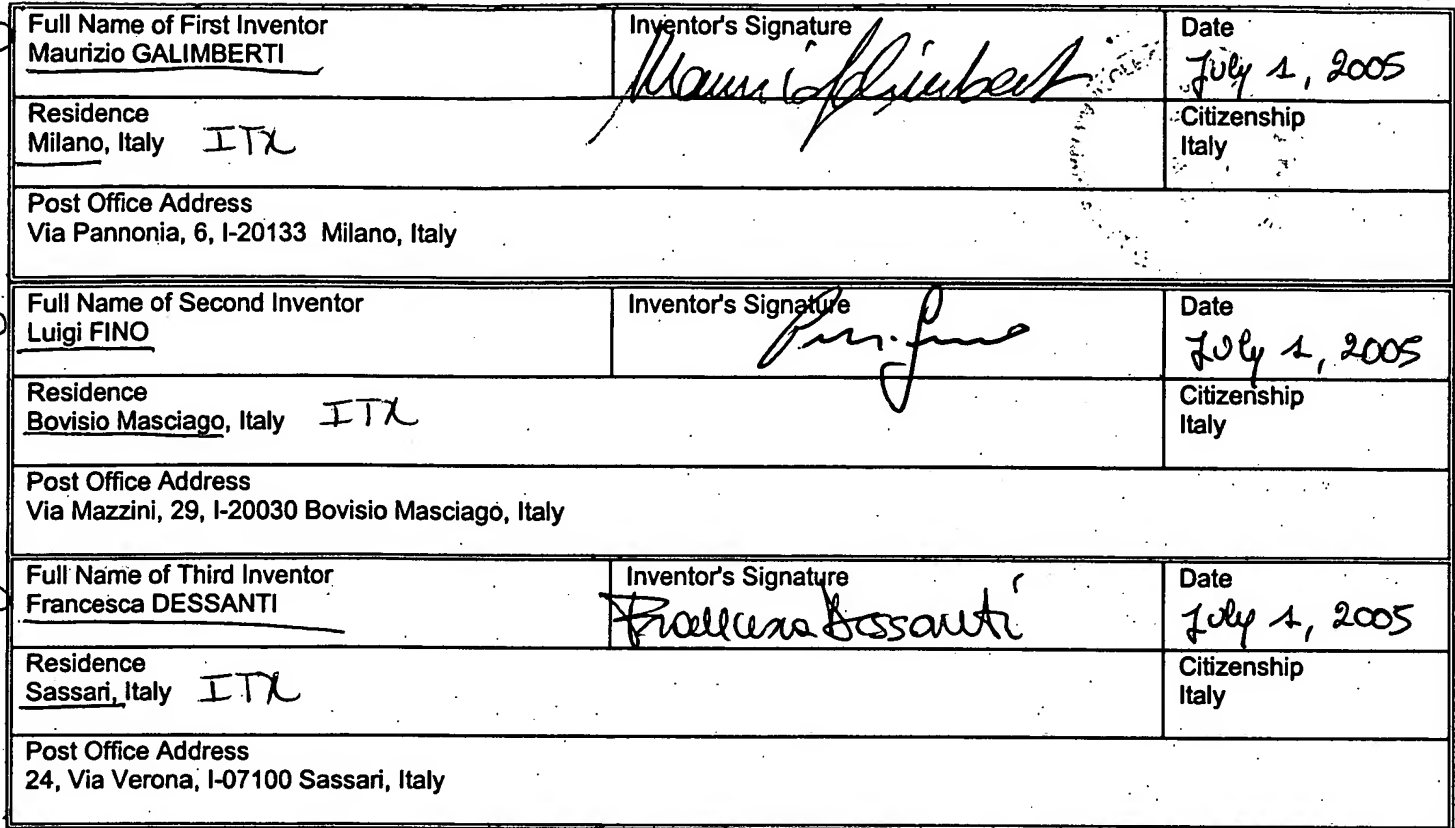 Full Name of First Inventor
Maurizio GALIMBERTI
Inventor's Signature
Date
July 1, 2005
Residence
Milano, Italy ITX
Citizenship
Italy
Post Office Address
Via Pannonia, 6, I-20133 Milano, Italy
Full Name of Second Inventor
Luigi FINO
Inventor's Signature
Date
July 1, 2005
Residence
Bovisio Masciago, Italy ITX
Citizenship
Italy
Post Office Address
Via Mazzini, 29, I-20030 Bovisio Masciago, Italy
Full Name of Third Inventor
Francesca DESSANTI
Inventor's Signature
Francesca Dessanti
Date
July 1, 2005
Residence
Sassari, Italy ITX
Citizenship
Italy
Post Office Address
24, Via Verona, I-07100 Sassari, Italy